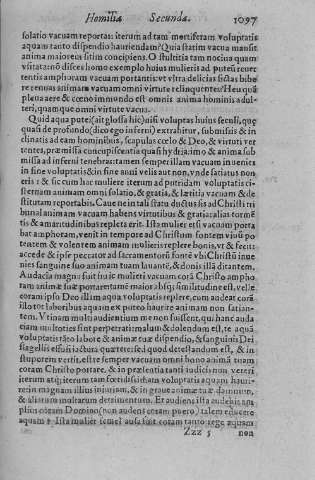 Homilia Secunda. 1097
solatio vacuum reportar: iterum ad tam mortiferam voluptatis
aquam tanto dispendio hauriendam? Quia statim vacua mansit
anima maiorem sitim concipiens. O stultitia tam nociua quam
vsitata: nō disces homo exemplo huius mulieris ad puteū reuer-
tentis amphoram vacuam portantis: vt vltra delicias fictas bibe
re renuas animam vacuam omni virtute relinquentem? Heu quā
plena aere & cœno immundo est omnis anima hominis adul-
teri, quamque omni virtute vacua.
Quid aqua putei (ait glossa hîc) nisi voluptas huius seculi, quę
quasi de profundo (dico ego inferni) extrahitur, submissis & in
clinatis ad eam hominibus, scapulas cœlo & Deo, & virtuti ver
tentes, præmissa concupiscentia quasi hydria imo & anima sub
missa ad inferni tenebras: tamen semper illam vacuam inuenies
in fine voluptatis & in fine anni velis aut non, vnde satiatus non
eris: & sic cum hac muliere iterum ad putidam voluptatis ci-
sternam animam omni solatio, & gratia, & lætitia vacuam & de
stitutam reportabis. Caue ne in tali statu ductus sis ad Christi tri
bunal animam vacuam habens virtutibus & gratia: alias tormē
tis & amaritudinibus repleta erit. Ista mulier etsi vacuam porta
bat amphoram, venit in tempore ad Christum fontem viuū po
tentem & volentem animam mulieris replere bonis, vt & fecit:
accede & ipse peccator ad sacramentorū fontē vbi Christū inue
nies sanguine suo animam tuam lauantē, & donis illā ditantem.
Audacia magna fuit huiꝰ mulieri vacuam corā Christo ampho
ram animæ suæ portare: tamē maior absq; similitudine est, velle
coram ipso Deo illam aqua voluptatis replere, cum audeat corā
illo tot laboribus aquam ex puteo haurire animam non satian-
tem. Vtinam multi audientium me non fuissent, qui hanc auda
ciam multoties sint perpetrati: malum & dolendum est, te aquā
voluptatis tāto labore & animæ tuæ dispendio, & sanguinis Dei
flagellis effusi iactura quærere: sed quod detestandum est, & in
stuporem vertit, est te semper vacuum omni bono animā tuam
coram Christo portare, & in præsentia tanti iudicis non vereri
iterum atq; iterum tam fœtidissimam voluptatis aquam hauri-
re in magnam illius iniuriam, & in graue animæ tuæ damnum,
& aliarum multarum detrimentum. Et audiens ista audebis am
plius coram Domino (non audens coram puero) talem educere
aquam? Ista mulier semel ausa fuit coram tanto rege aquam
Zzz 5 non